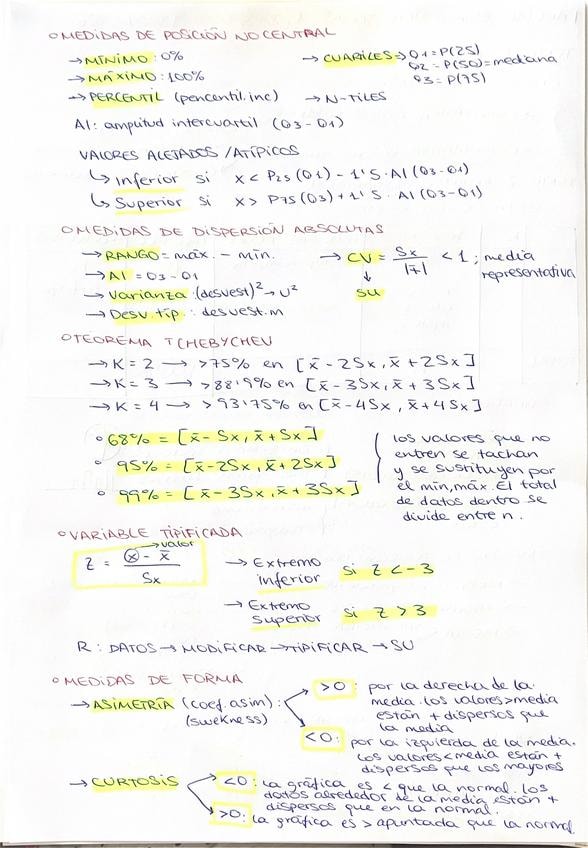 ○ MEDIDAS DE POSICIÓN NO CENTRAL
→ MÍNIMO: 0% → CUARTILES → Q1 = P(25)
Q2 = P(50) = mediana
Q3 = P(75)
→ MÁXIMO: 100%
→ PERCENTIL (pencentil.inc) → N-TILES
AI: amplitud intercuartil (Q3 - Q1)
VALORES ALEJADOS / ATÍPICOS
↳ Inferior si x < P25 (Q1) - 1'5 · AI (Q3 - Q1)
↳ Superior si x > P75 (Q3) + 1'5 · AI (Q3 - Q1)
○ MEDIDAS DE DISPERSIÓN ABSOLUTAS
→ RANGO = máx. - mín. → CV = Sx / |x̄| < 1 ; media
representativa
↓
SU
→ AI = Q3 - Q1
→ Varianza : (desvest)² → U²
→ Desv. tip : desvest.m
○ TEOREMA TCHEBYCHEV
→ K = 2 → > 75% en [x̄ - 2Sx, x̄ + 2Sx]
→ K = 3 → > 88'9% en [x̄ - 3Sx, x̄ + 3Sx]
→ K = 4 → > 93'75% en [x̄ - 4Sx, x̄ + 4Sx]
○ 68% = [x̄ - Sx, x̄ + Sx]
○ 95% = [x̄ - 2Sx, x̄ + 2Sx]
○ 99% = [x̄ - 3Sx, x̄ + 3Sx]
los valores que no
entren se tachan
y se sustituyen por
el mín, máx. El total
de datos dentro se
divide entre n.
○ VARIABLE TIPIFICADA
→ valor
Z = x - x̄ / Sx
→ Extremo
inferior si Z < -3
→ Extremo
Superior si Z > 3
R : DATOS → MODIFICAR → TIPIFICAR → SU
○ MEDIDAS DE FORMA
→ ASIMETRÍA (coef. asim) :
(swekness)
>0 : por la derecha de la
media. los valores > media
están + dispersos que
la media
<0 : por la izquierda de la media.
Los valores < media están +
dispersos que los mayores
→ CURTOSIS
<0 : la gráfica es < que la normal. los
datos alrededor de la media están +
dispersos que en la normal.
>0 : la gráfica es > apuntada que la normal.